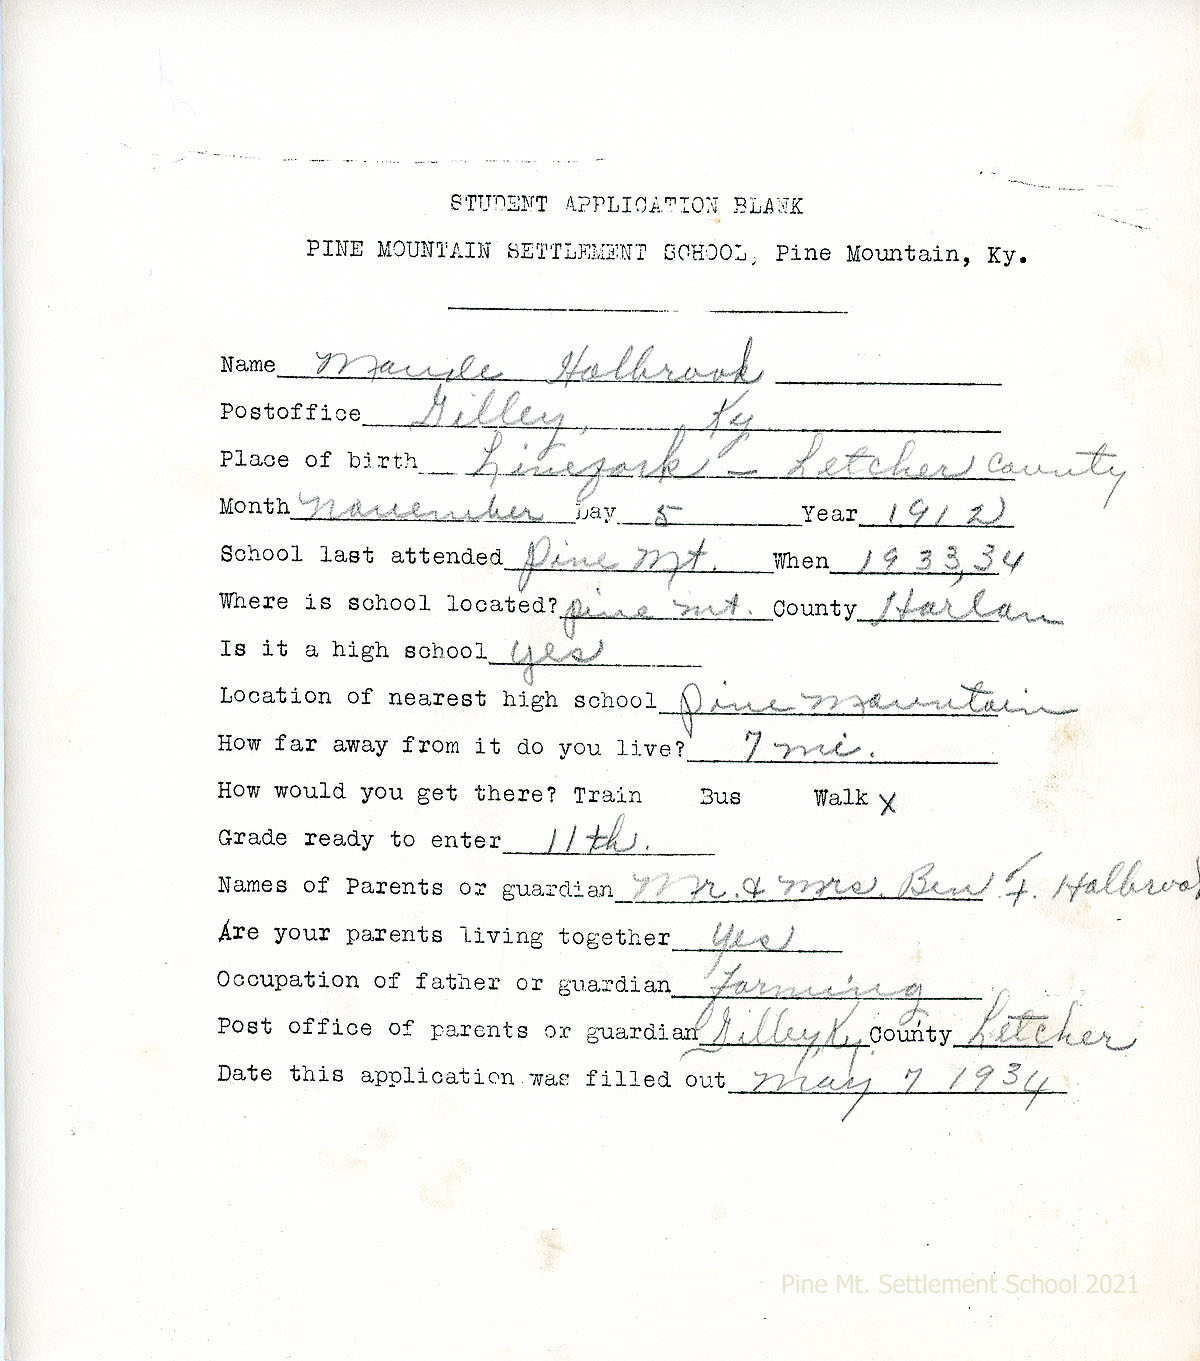 STUDENT APPLICATION BLANK
PINE MOUNTAIN SETTLEMENT SCHOOL, Pine Mountain, Ky.
Name Maude Holbrook
Postoffice Gilley, Ky
Place of birth Linefork - Letcher County
Month November Day 5 Year 1912
School last attended Pine Mt. When 1933,34
Where is school located? pine mt. County Harlan
Is it a high school yes
Location of nearest high school pine mountain
How far away from it do you live? 7 mi.
How would you get there? Train Bus Walk x
Grade ready to enter 11th.
Names of Parents or guardian Mr. & Mrs. Ben F. Holbrook
Are your parents living together yes
Occupation of father or guardian farming
Post office of parents or guardian Gilley, Ky. County Letcher
Date this application was filled out May 7 1934
Pine Mt. Settlement School 2021